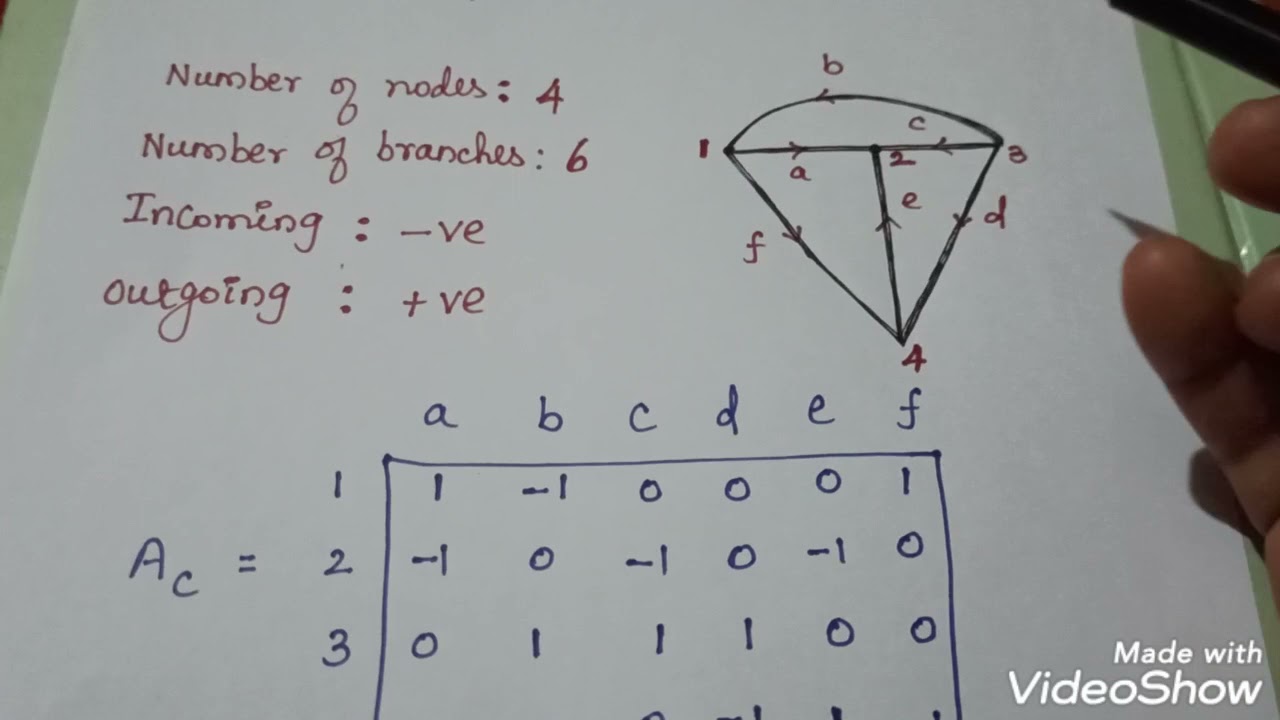 Number of nodes: 4
Number of branches: 6
Incoming : -ve
outgoing : +ve
b
c
1 a 2 3
e d
f
4
a b c d e f
1 1 -1 0 0 0 1
Ac = 2 -1 0 -1 0 -1 0
3 0 1 1 1 0 0
Made with
VideoShow